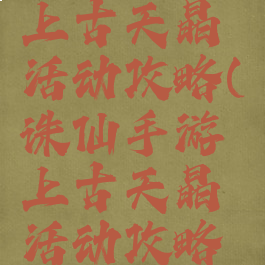 上古天晶
活动攻略(
诛仙手游
上古天晶
活动攻略